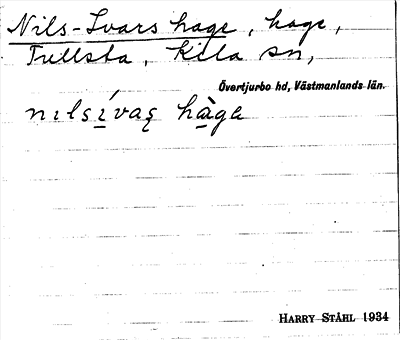 Nils-Ivars hage, hage,
Tullsta, Kila sn,
Övertjurbo hd, Västmanlands län.
nılsívaʂ hàga
HARRY STÅHL 1934